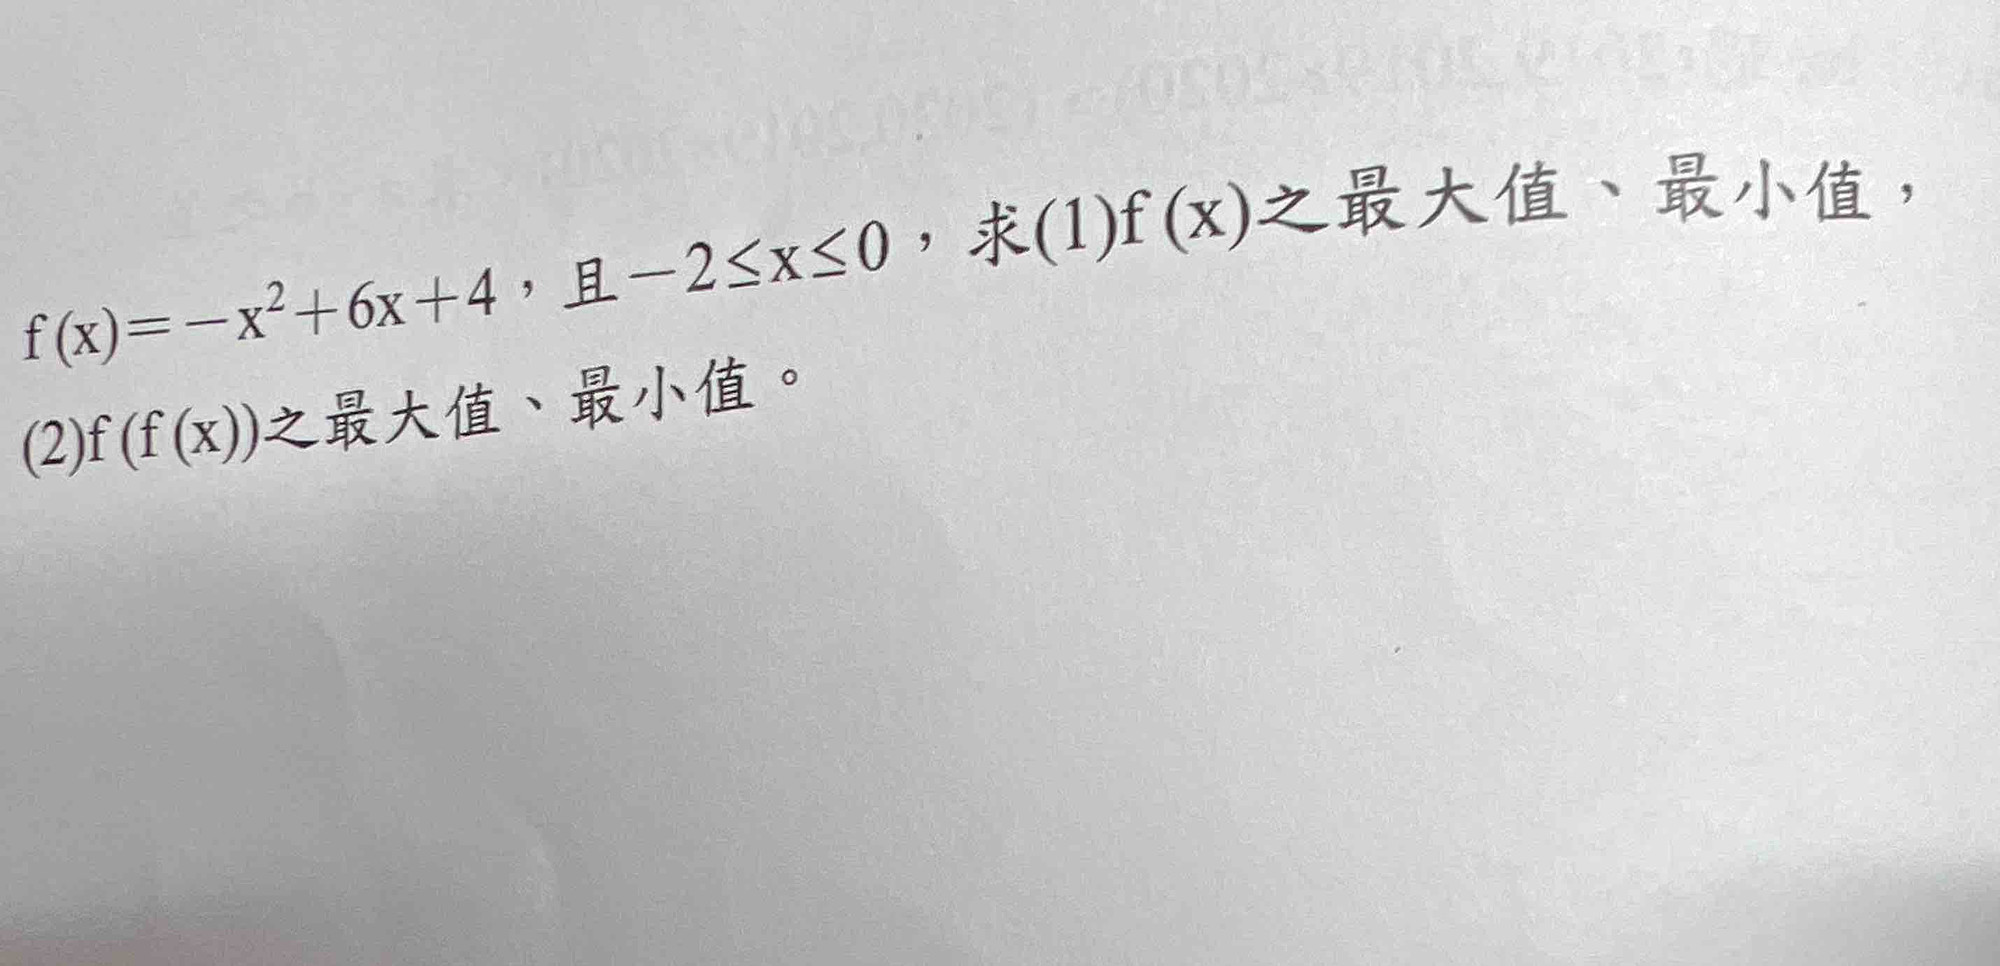 f(x)=-x²+6x+4，且-2≤x≤0，求(1)f(x)之最大值、最小值，
(2)f(f(x))之最大值、最小值。